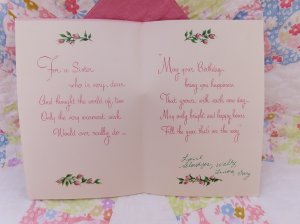 For a Sister
who is very dear
And thought the world of, too
Only the very warmest wish
Would ever really do —
May your Birthday
bring you happiness
That grows with each new day —
May only bright and happy hours
Fill the year that's on the way
Love